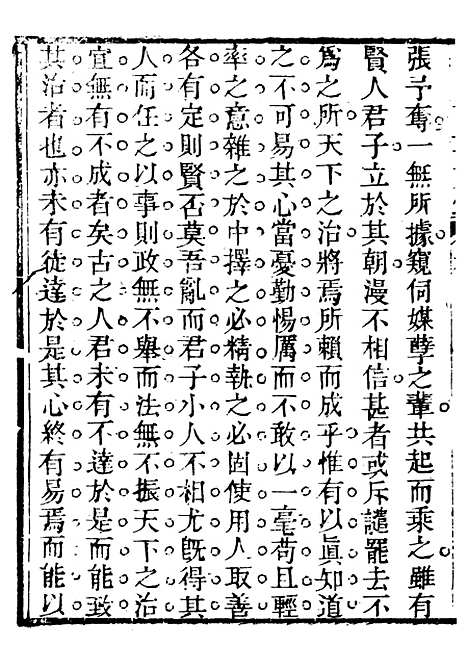 張予奪一無所據窺伺媒孽之輩共起而乘之雖有
賢人君子立於其朝漫不相信甚者或斥譴罷去不
爲之所天下之治將焉所賴而成乎惟有以眞知道
之不可易其心當憂勤惕厲而不敢以一毫苟且輕
率之意雜之於中擇之必精執之必固使用人取善
各有定則賢否莫吾亂而君子小人不相尤旣得其
人而任之以事則政無不舉而法無不振天下之治
宜無有不成者矣古之人君未有不達於是而能致
其治者也亦未有徒達於是其心終有易焉而能以